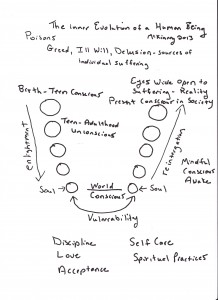 The Inner Evolution of a Human Being
McKinny 2013
Poisons
Greed, Ill Will, Delusion - Sources of
Individual suffering
Birth-Teen Conscious
Eyes Wide Open to
Suffering - Reality
Present Conscious in Society
Teen-Adulthood
Unconscious
enlightenment
reintegration
Mindful
Conscious
Awake
Soul
World
Conscious
Soul
Vulnerability
Discipline
Love
Acceptance
Self Care
Spiritual Practices